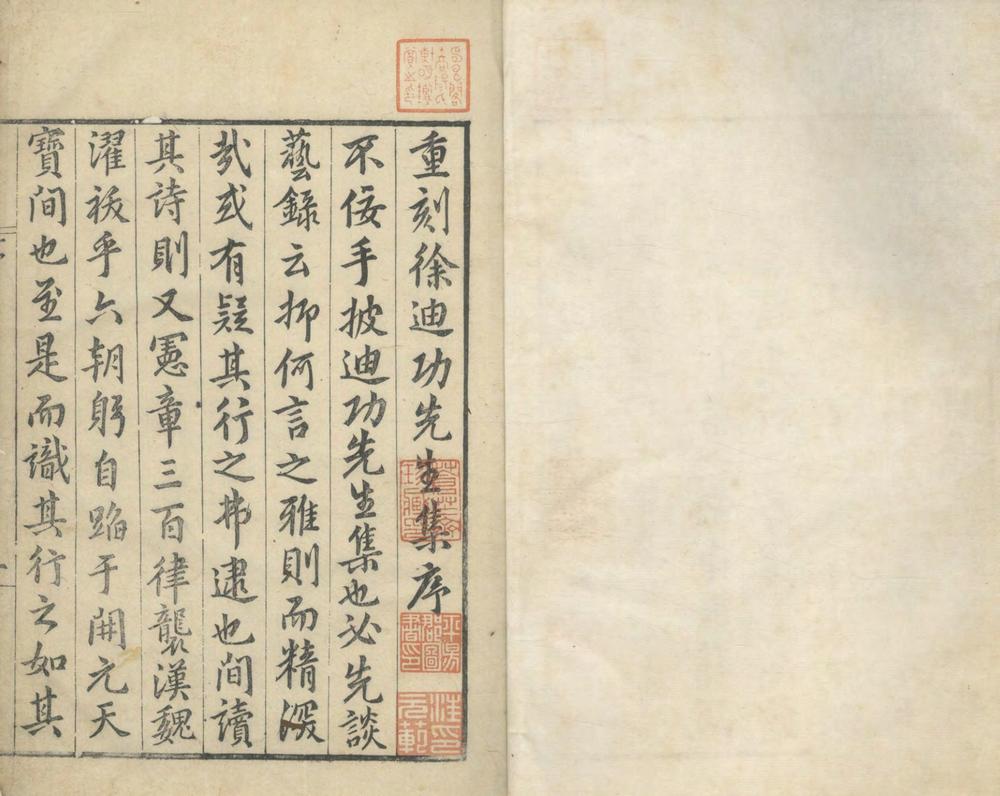 重刻徐迪功先生集序
不佞手披迪功先生集也必先談
藝錄云抑何言之雅則而精深
哉或有疑其行之弗逮也間讀
其詩則又憲章三百律襲漢魏
濯祓乎六朝躬自蹈于開元天
寶間也至是而識其行之如其
平昜郡圖書印
汪印元範